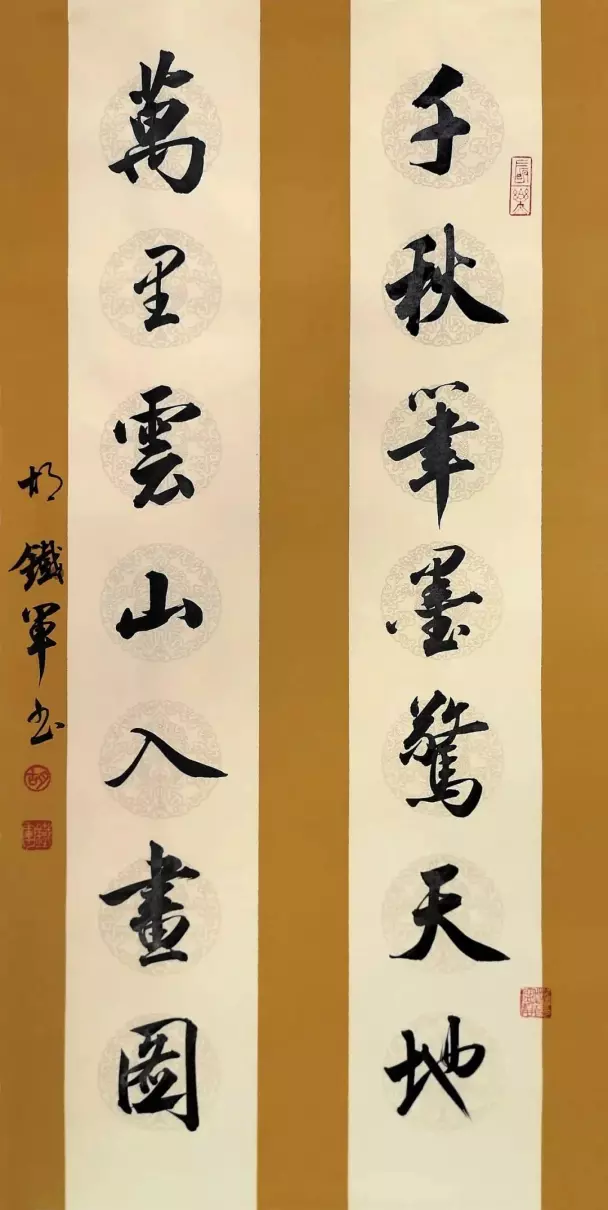 千秋筆墨驚天地
萬里雲山入畫圖
胡鐵軍书
胡